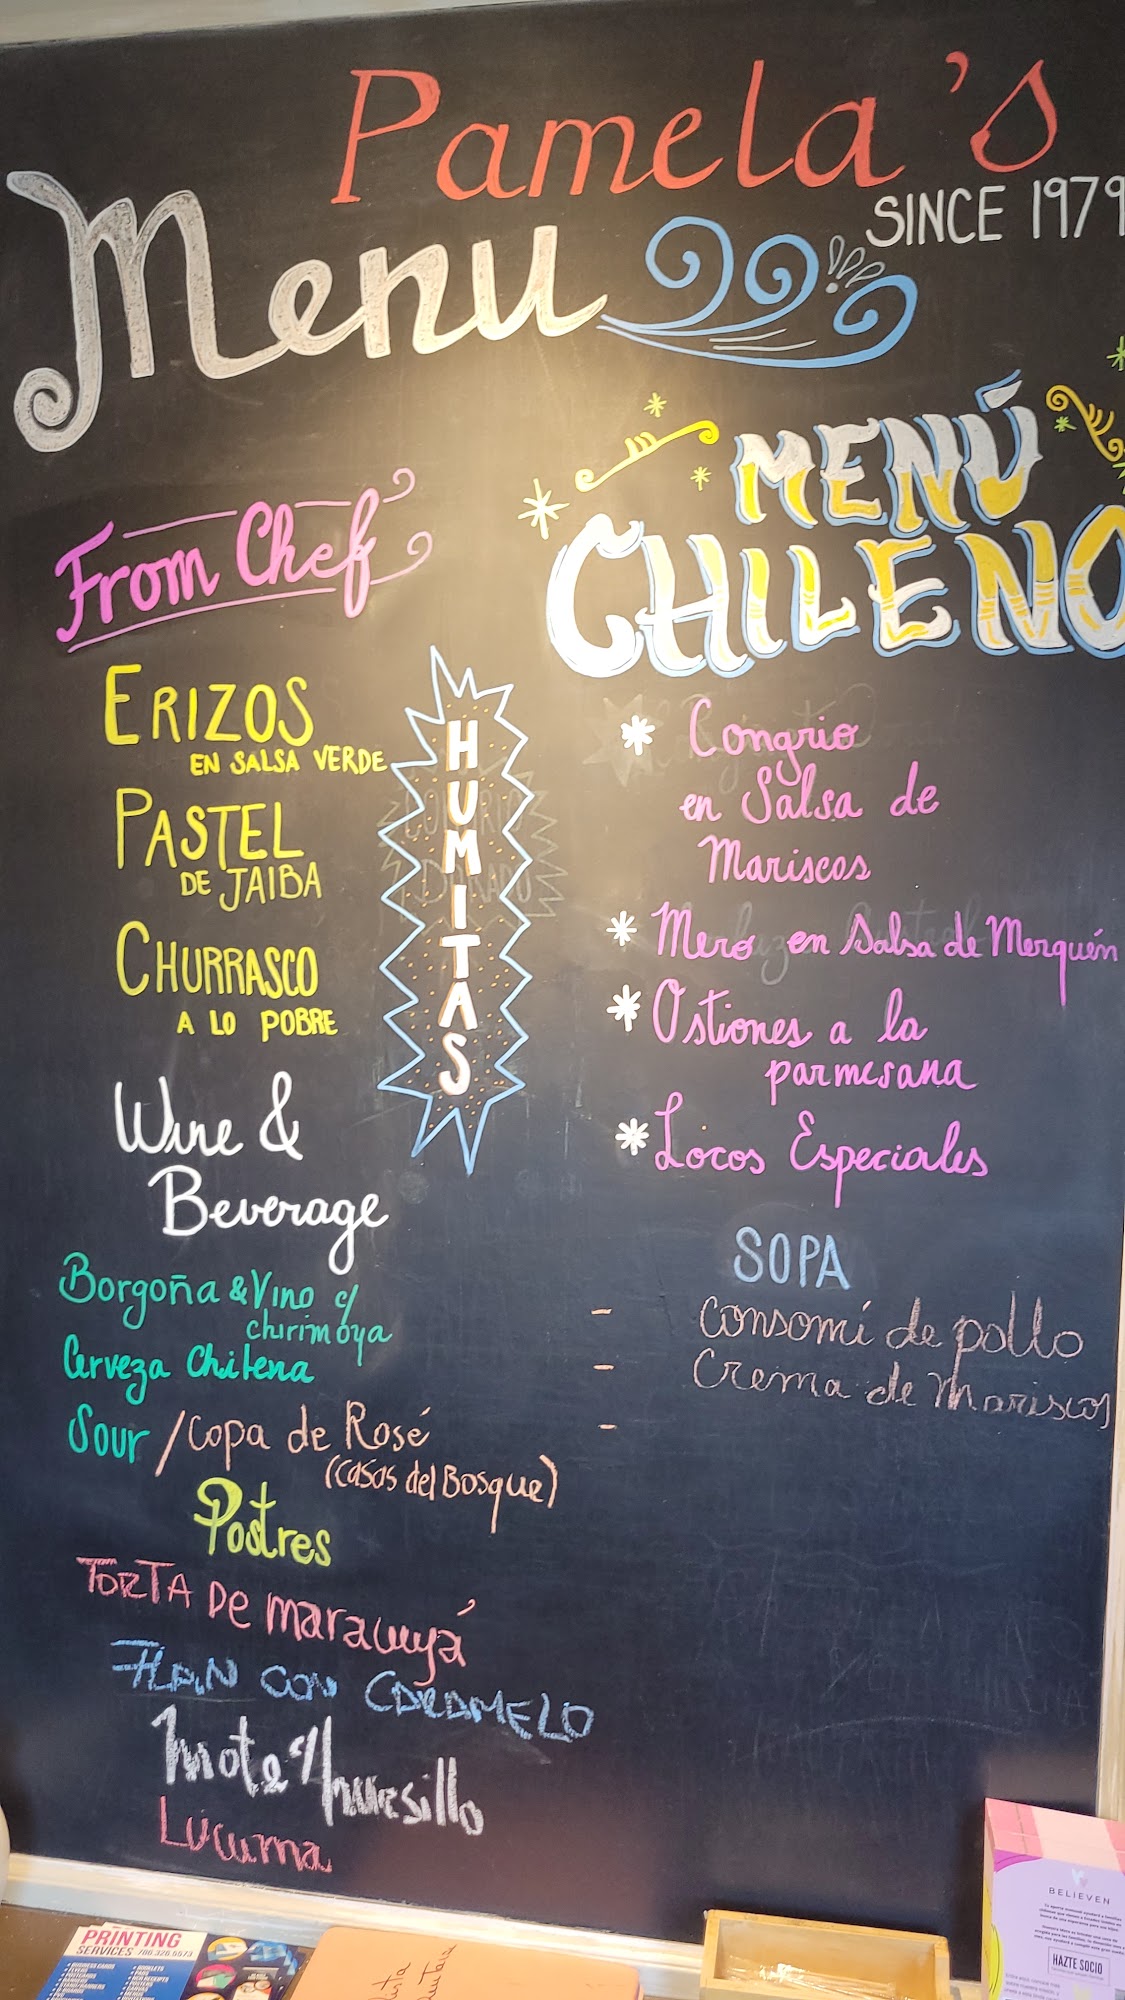 Pamela's
SINCE 1979
Menu
From Chef
ERIZOS
EN SALSA VERDE
PASTEL
DE JAIBA
CHURRASCO
A LO POBRE
HUMITAS
MENÚ
CHILENO
* Congrio
en Salsa de
Mariscos
* Mero en Salsa de Merquén
* Ostiones a la
parmesana
* Locos Especiales
Wine &
Beverage
Borgoña & Vino c/
chirimoya
Cerveza Chilena
Sour / Copa de Rosé
(Casas del Bosque)
SOPA
- Consomí de pollo
- Crema de Mariscos
-
Postres
TORTA De maracuyá
FLAN CON CARAMELO
Mote c/huesillo
Lúcuma
PRINTING
SERVICES 786.326.5573
BELIEVEN
HAZTE SOCIO